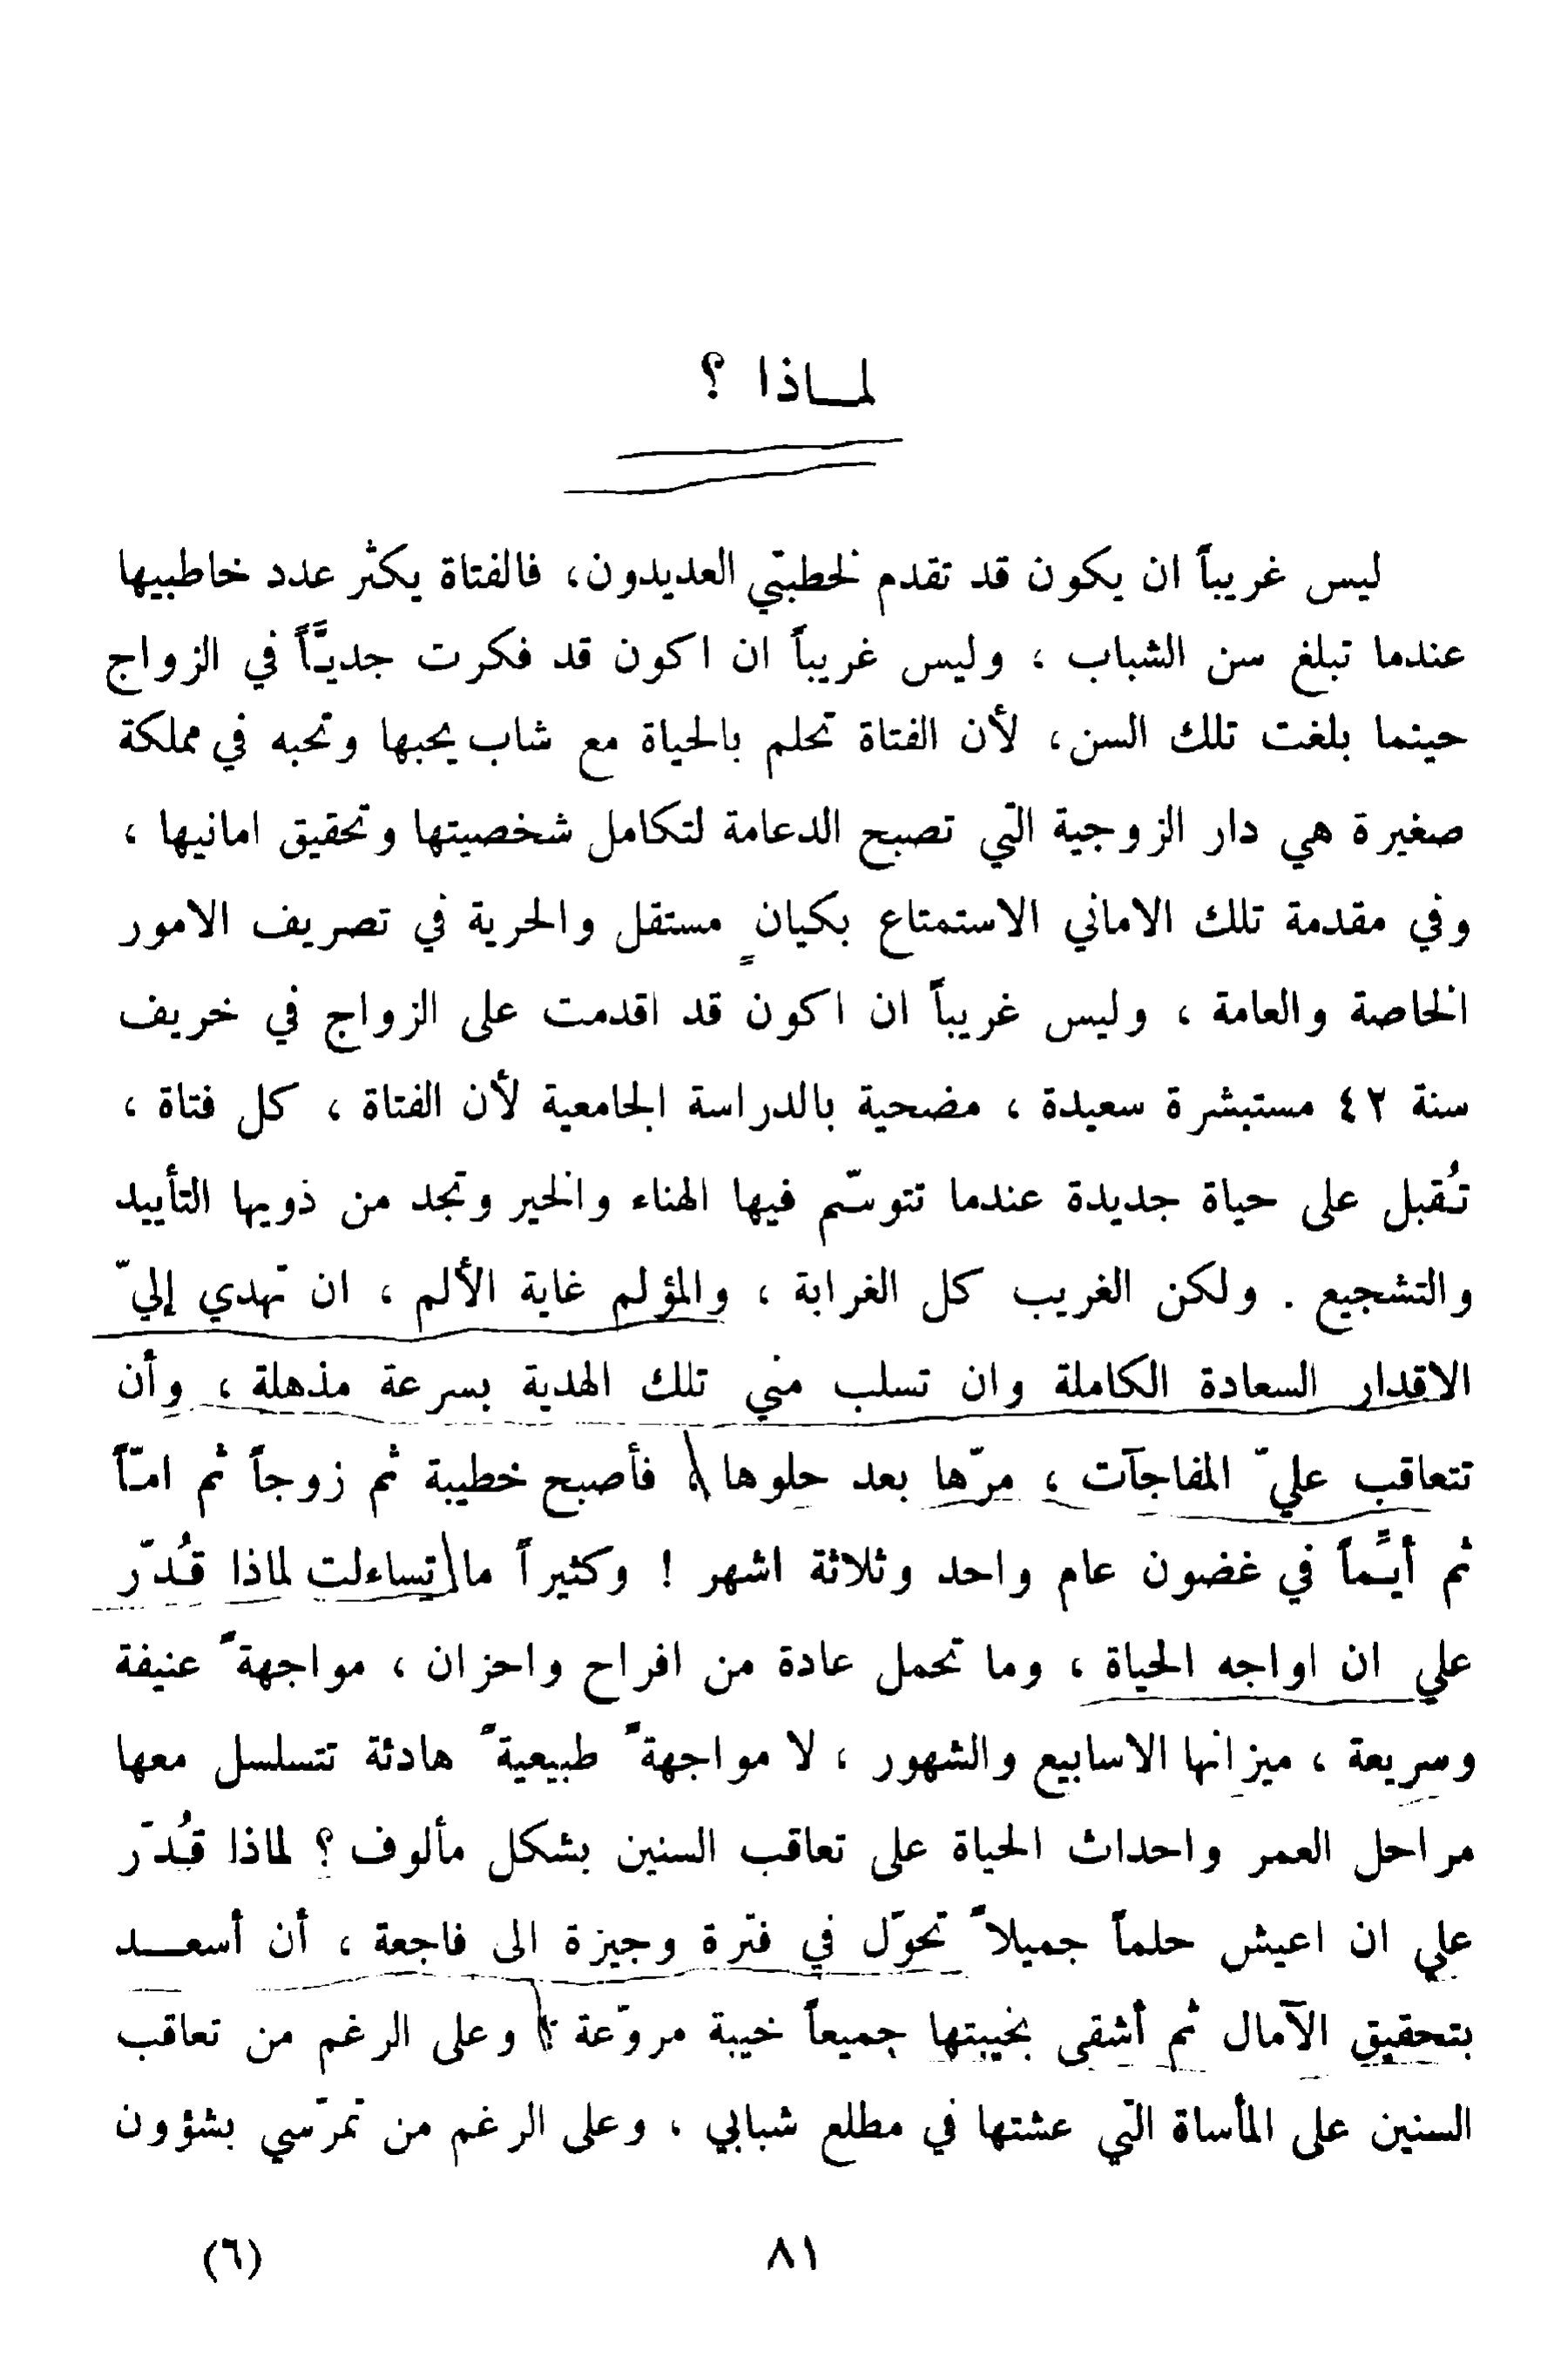 لمـاذا ؟
ليس غريباً ان يكون قد تقدم لخطبتي العديدون، فالفتاة يكثر عدد خاطبيها
عندما تبلغ سن الشباب ، وليس غريباً ان اكون قد فكرت جديّاً في الزواج
حينما بلغت تلك السن، لأن الفتاة تحلم بالحياة مع شاب يحبها وتحبه في مملكة
صغيرة هي دار الزوجية التي تصبح الدعامة لتكامل شخصيتها وتحقيق امانيها ،
وفي مقدمة تلك الاماني الاستمتاع بكيانٍ مستقل والحرية في تصريف الامور
الخاصة والعامة ، وليس غريباً ان اكون قد اقدمت على الزواج في خريف
سنة ٤٢ مستبشرة سعيدة ، مضحية بالدراسة الجامعية لأن الفتاة ، كل فتاة ،
تُقبل على حياة جديدة عندما تتوسّم فيها الهناء والخير وتجد من ذويها التأييد
والتشجيع . ولكن الغريب كل الغرابة ، والمؤلم غاية الألم ، ان تهدي إليّ
الاقدار السعادة الكاملة وان تسلب مني تلك الهدية بسرعة مذهلة ، وأن
تتعاقب عليّ المفاجآت ، مرّها بعد حلوها ، فأصبح خطيبة ثم زوجاً ثم امّاً
ثم أيّماً في غضون عام واحد وثلاثة اشهر ! وكثيراً ما تساءلت لماذا قُدّر
علي ان اواجه الحياة ، وما تحمل عادة من افراح واحزان ، مواجهةً عنيفة
وسريعة ، ميزانها الاسابيع والشهور ، لا مواجهةً طبيعيةً هادئة تتسلسل معها
مراحل العمر واحداث الحياة على تعاقب السنين بشكل مألوف ؟ لماذا قُدّر
علي ان اعيش حلماً جميلاً تحوّل في فترة وجيزة الى فاجعة ، أن أسعــد
بتحقيق الآمال ثم أشقى بخيبتها جميعاً خيبة مروّعة ؟ وعلى الرغم من تعاقب
السنين على المأساة التي عشتها في مطلع شبابي ، وعلى الرغم من تمرّسي بشؤون
٨١
(٦)